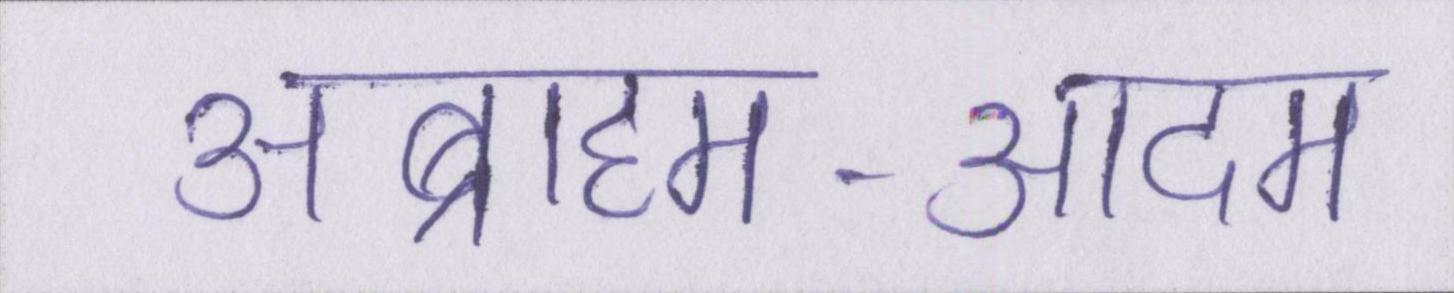 अब्राहम-आदम